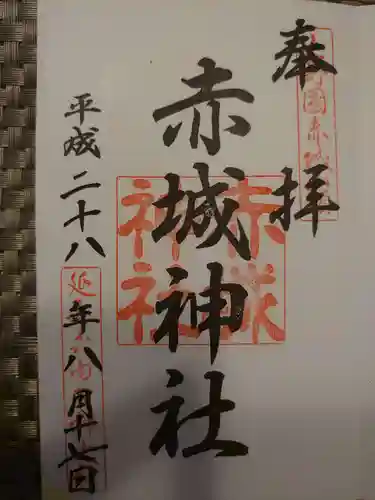 奉拝
赤城神社
平成二十八年八月十七日
赤城
神社